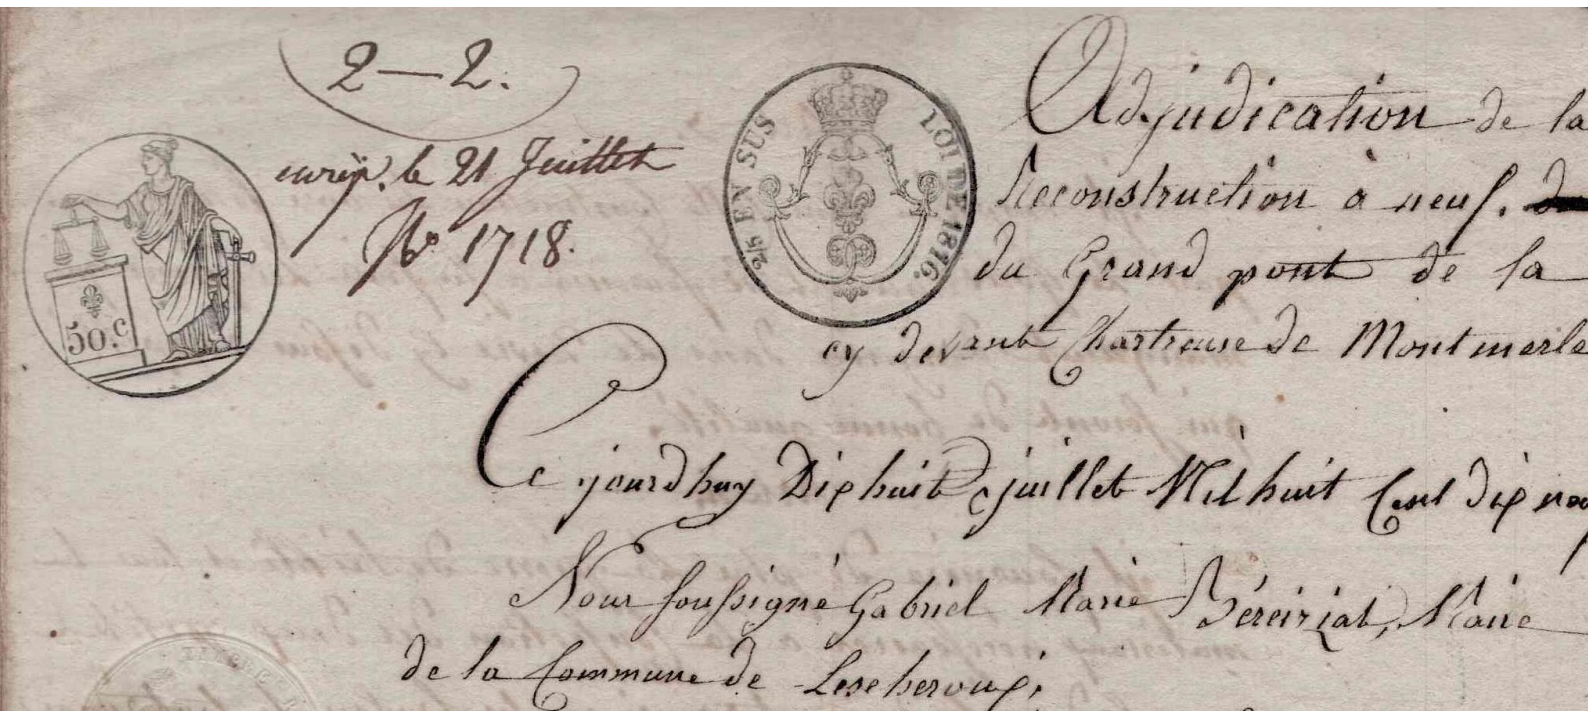 2—2.
enreg. le 21 Juillet
No 1718.
50.c
2/5 EN SUS
LOI DE 1816.
Adjudication de la
Reconstruction à neuf.
du Grand pont de la
cy devant Chartreuse de Montmerle
Ce jourdhuy Dixhuit juillet Mil huit Cent dix
Nous soussigné Gabriel Marie Béreiziat, Maire
de la Commune de Lescheroux,